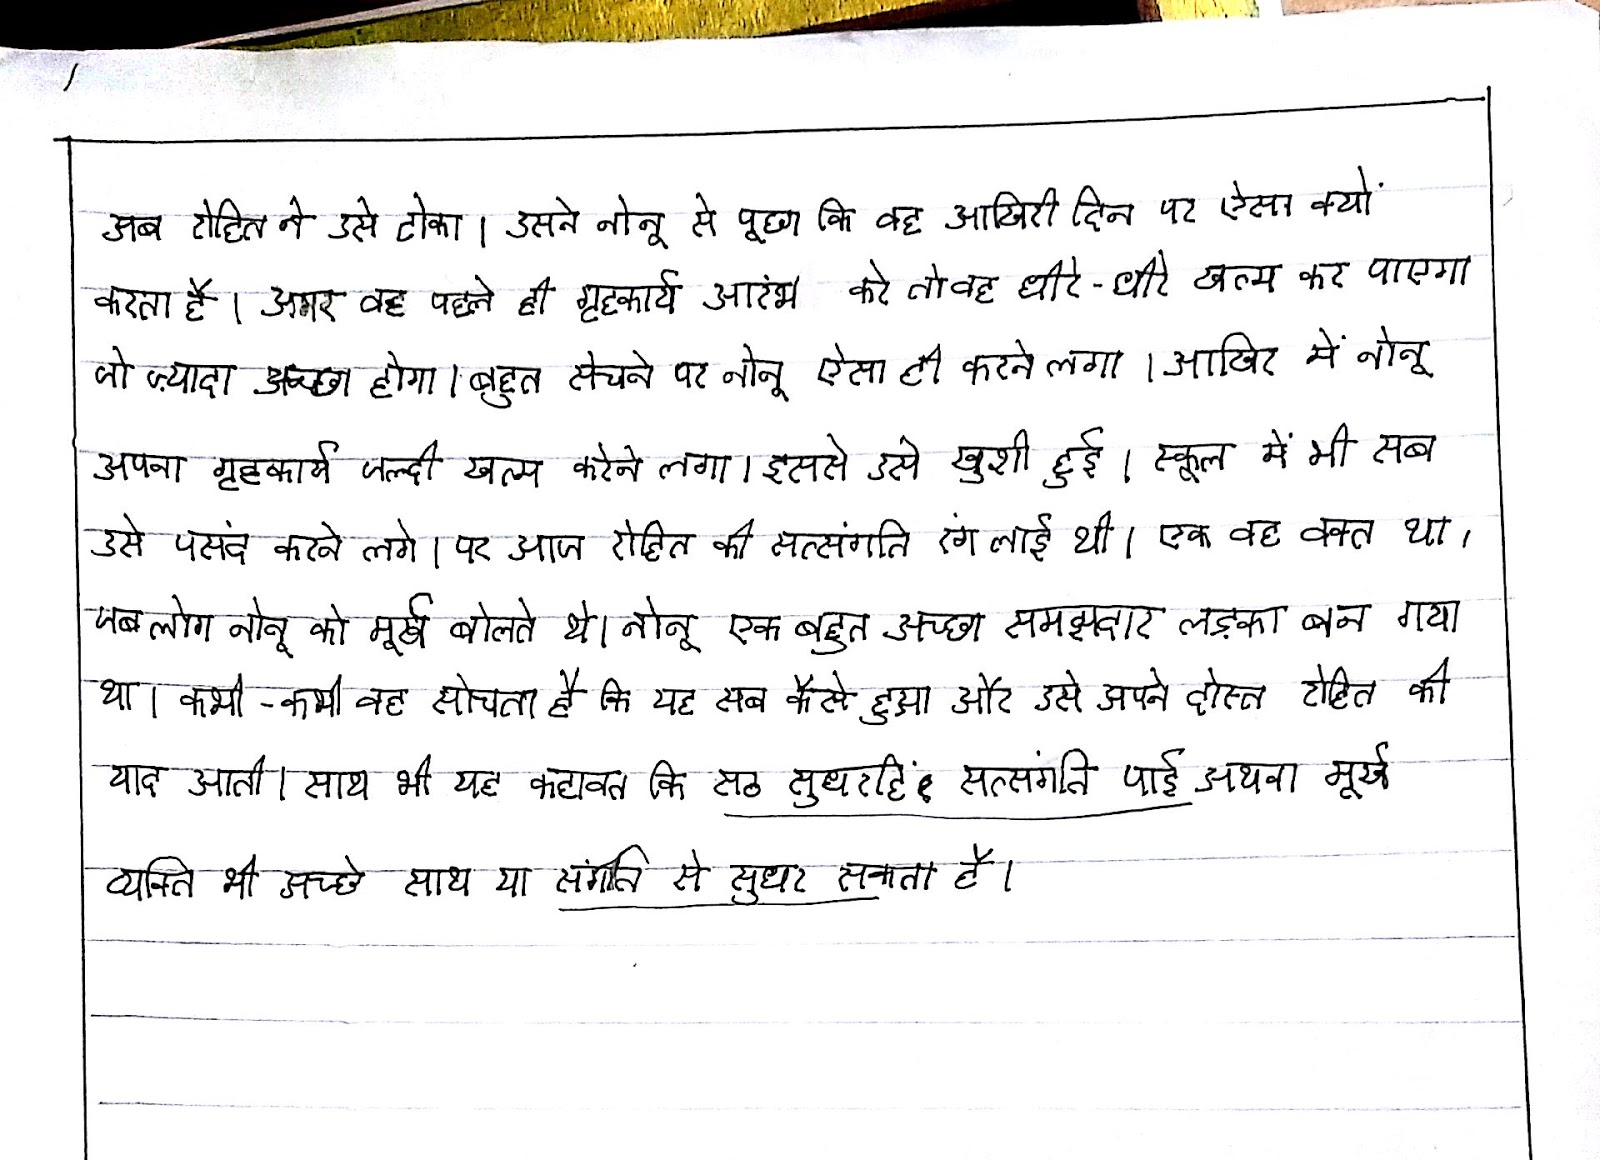 अब रोहित ने उसे टोका। उसने नोनू से पूछा कि वह आखिरी दिन पर ऐसा क्यों
करता है। अगर वह पहले ही गृहकार्य आरंभ करे तो वह धीरे-धीरे खत्म कर पाएगा
जो ज़्यादा अच्छा होगा। बहुत सोचने पर नोनू ऐसा ही करने लगा। आखिर में नोनू
अपना गृहकार्य जल्दी खत्म करने लगा। इससे उसे खुशी हुई। स्कूल में भी सब
उसे पसंद करने लगे। पर आज रोहित की सत्संगति रंग लाई थी। एक वह वक्त था,
जब लोग नोनू को मूर्ख बोलते थे। नोनू एक बहुत अच्छा समझदार लड़का बन गया
था। कभी-कभी वह सोचता है कि यह सब कैसे हुआ और उसे अपने दोस्त रोहित की
याद आती। साथ भी यह कहावत कि सठ सुधरहिं सत्संगति पाई अथवा मूर्ख
व्यक्ति भी अच्छे साथ या संगति से सुधर सकता है।